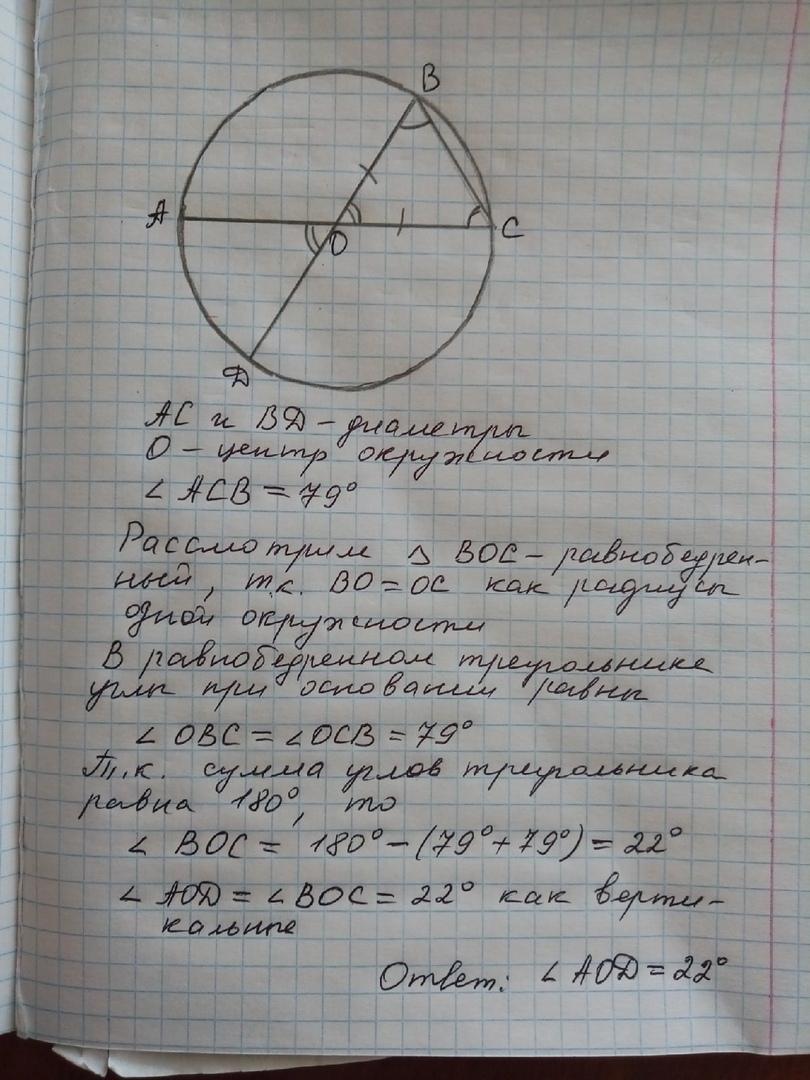 B
A
O
C
D
AC и BD - диаметры
O - центр окружности
∠ ACB = 79°
Рассмотрим △ BOC - равнобедрен-
ный, т.к. BO = OC как радиусы
одной окружности
В равнобедренном треугольнике
углы при основании равны
∠ OBC = ∠OCB = 79°
Т.к. сумма углов треугольника
равна 180°, то
∠ BOC = 180° - (79° + 79°) = 22°
∠ AOD = ∠BOC = 22° как верти-
кальные
Ответ: ∠ AOD = 22°